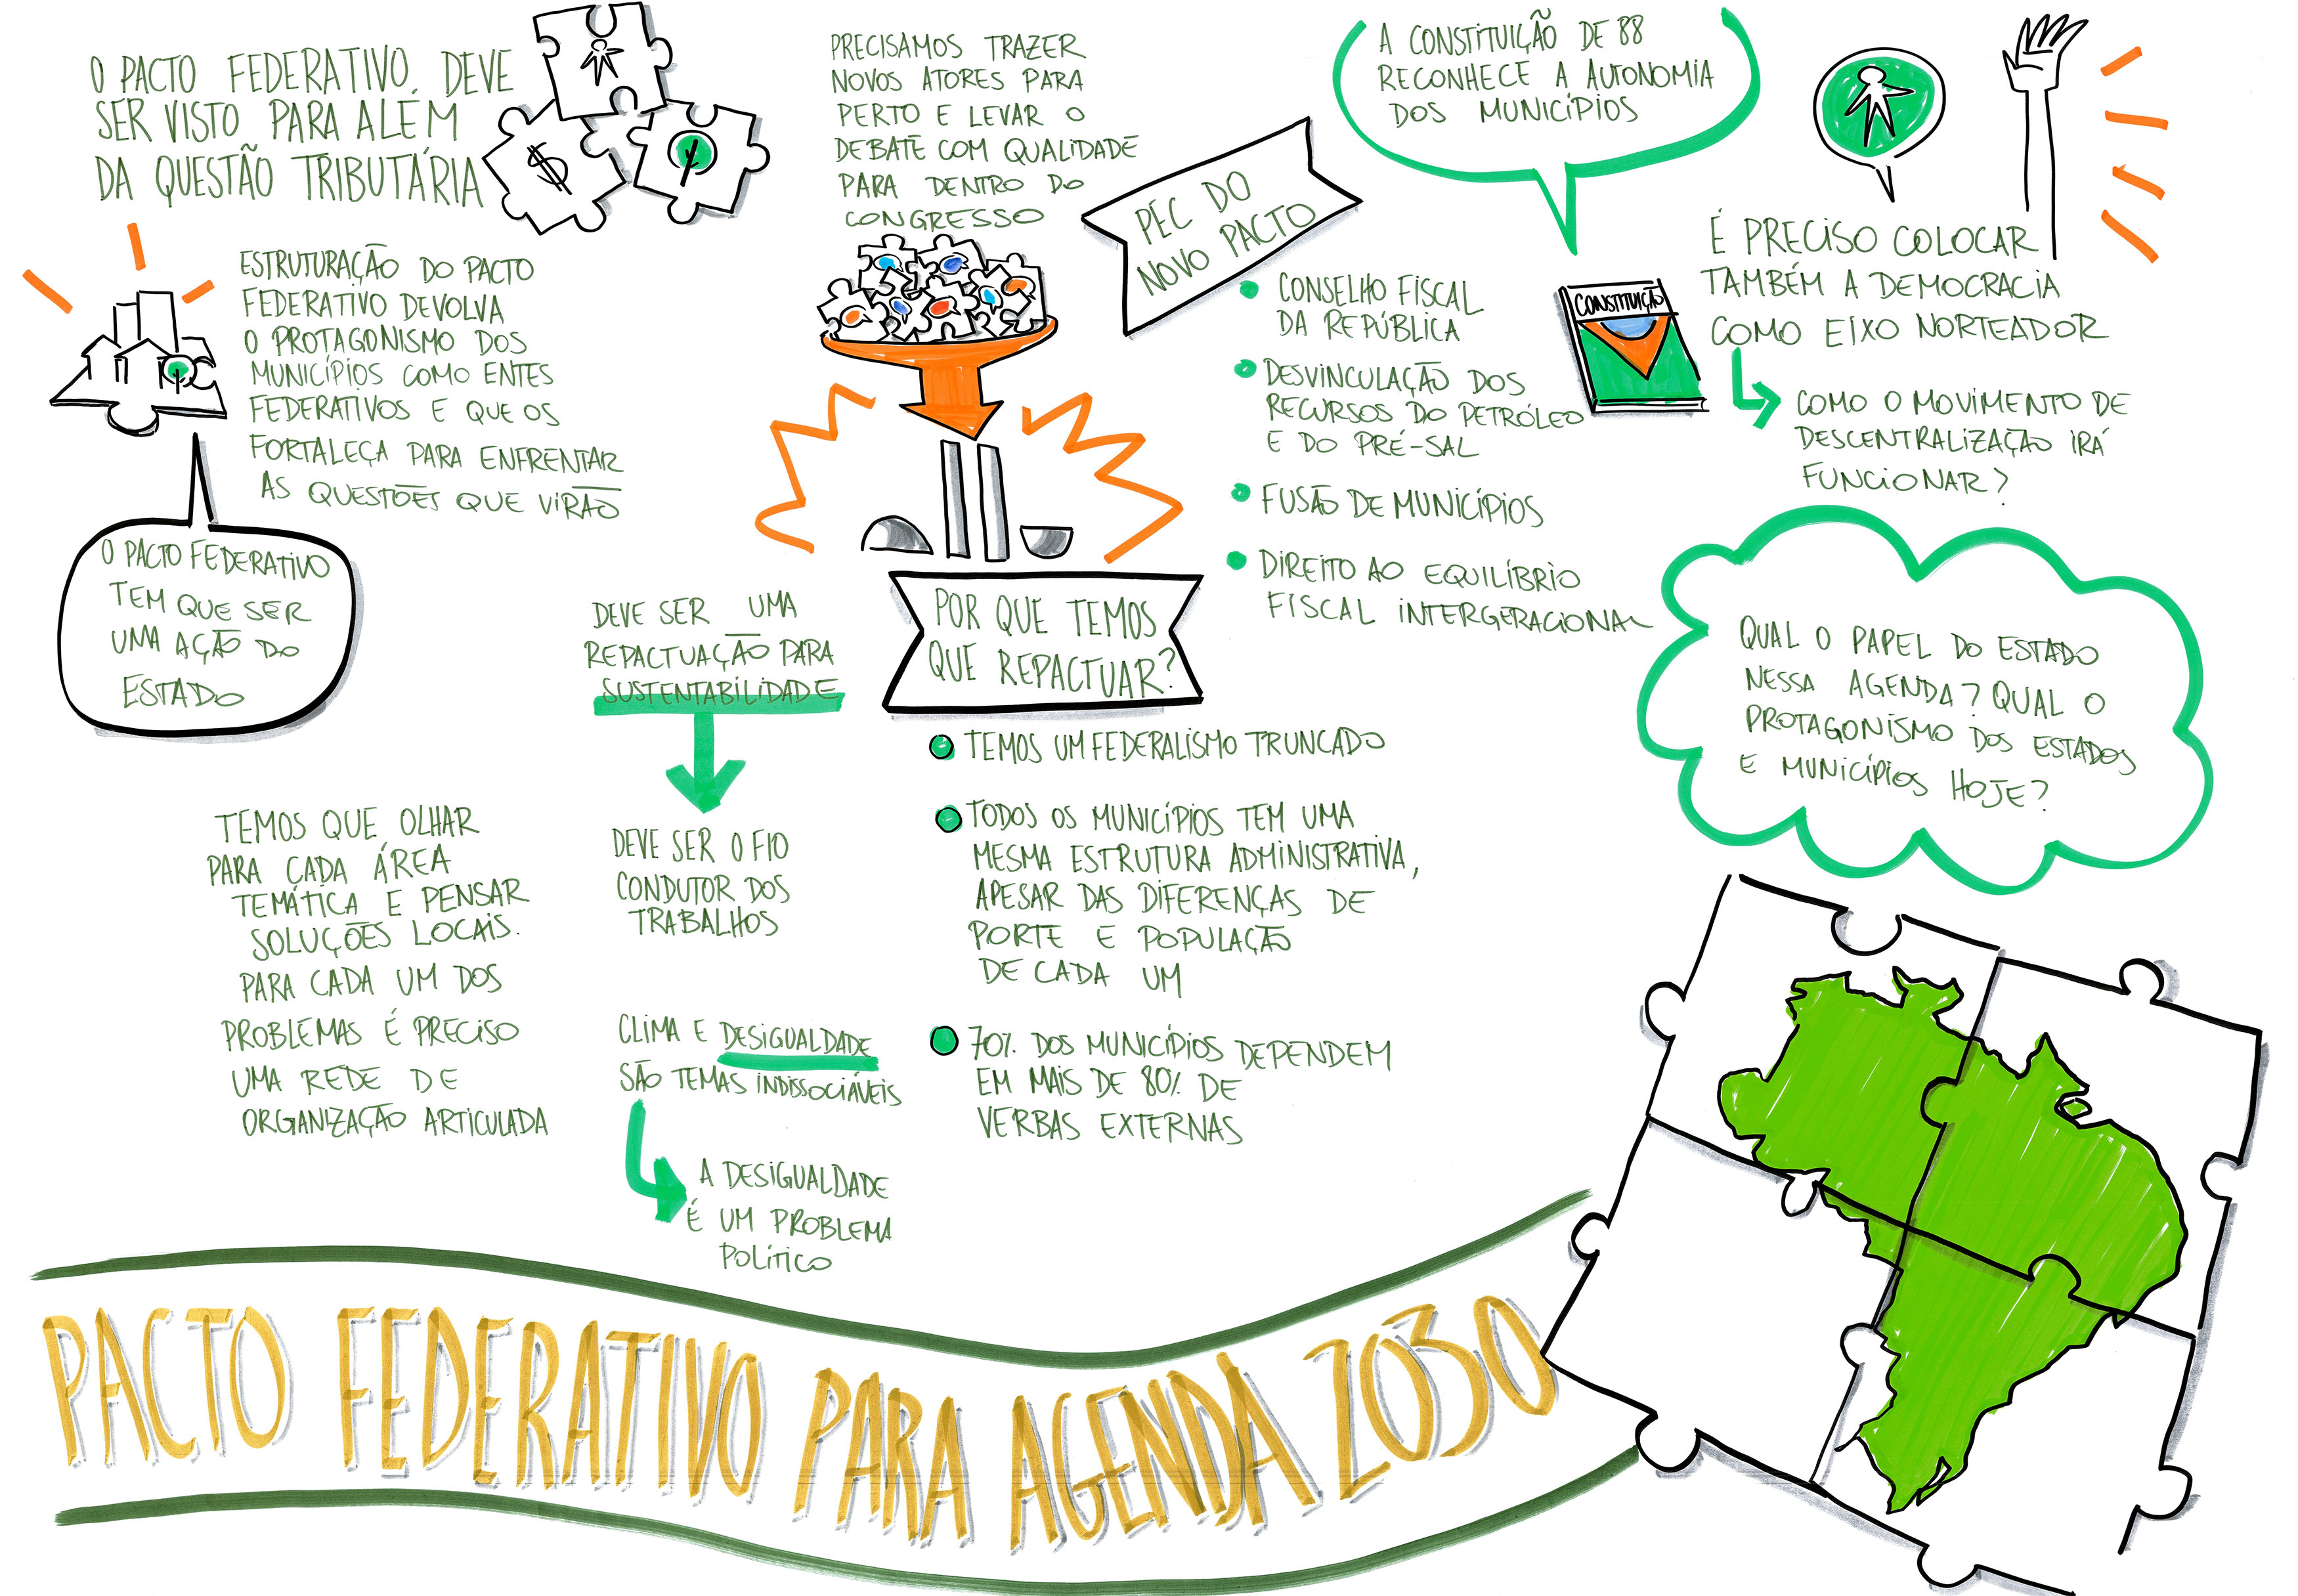 O PACTO FEDERATIVO, DEVE
SER VISTO PARA ALÉM
DA QUESTÃO TRIBUTÁRIA
$
ESTRUTURAÇÃO DO PACTO
FEDERATIVO DEVOLVA
O PROTAGONISMO DOS
MUNICÍPIOS COMO ENTES
FEDERATIVOS E QUE OS
FORTALEÇA PARA ENFRENTAR
AS QUESTÕES QUE VIRÃO
O PACTO FEDERATIVO
TEM QUE SER
UMA AÇÃO DO
ESTADO
PRECISAMOS TRAZER
NOVOS ATORES PARA
PERTO E LEVAR O
DEBATE COM QUALIDADE
PARA DENTRO DO
CONGRESSO
PEC DO
NOVO PACTO
CONSELHO FISCAL
DA REPÚBLICA
DESVINCULAÇÃO DOS
RECURSOS DO PETRÓLEO
E DO PRÉ-SAL
FUSÃO DE MUNICÍPIOS
DIREITO AO EQUILÍBRIO
FISCAL INTERGERACIONAL
A CONSTITUIÇÃO DE 88
RECONHECE A AUTONOMIA
DOS MUNICÍPIOS
CONSTITUIÇÃO
É PRECISO COLOCAR
TAMBÉM A DEMOCRACIA
COMO EIXO NORTEADOR
COMO O MOVIMENTO DE
DESCENTRALIZAÇÃO IRÁ
FUNCIONAR?
QUAL O PAPEL DO ESTADO
NESSA AGENDA? QUAL O
PROTAGONISMO DOS ESTADOS
E MUNICÍPIOS HOJE?
POR QUE TEMOS
QUE REPACTUAR?
TEMOS UM FEDERALISMO TRUNCADO
TODOS OS MUNICÍPIOS TEM UMA
MESMA ESTRUTURA ADMINISTRATIVA,
APESAR DAS DIFERENÇAS DE
PORTE E POPULAÇÃO
DE CADA UM
70% DOS MUNICÍPIOS DEPENDEM
EM MAIS DE 80% DE
VERBAS EXTERNAS
DEVE SER UMA
REPACTUAÇÃO PARA
SUSTENTABILIDADE
DEVE SER O FIO
CONDUTOR DOS
TRABALHOS
CLIMA E DESIGUALDADE
SÃO TEMAS INDISSOCIÁVEIS
A DESIGUALDADE
É UM PROBLEMA
POLÍTICO
TEMOS QUE OLHAR
PARA CADA ÁREA
TEMÁTICA E PENSAR
SOLUÇÕES LOCAIS.
PARA CADA UM DOS
PROBLEMAS É PRECISO
UMA REDE DE
ORGANIZAÇÃO ARTICULADA
PACTO FEDERATIVO PARA AGENDA 2030